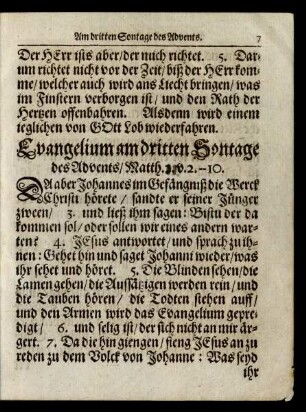 Am dritten Sontage des Advents. 7
Der HErr ists aber/der mich richtet. 5. Dar-
um richtet nicht vor der Zeit/biß der HErr kom-
me/welcher auch wird ans Liecht bringen/was
im Finstern verborgen ist/und den Rath der
Hertzen offenbahren. Alsdenn wird einem
ieglichen von GOtt Lob wiederfahren.
Evangelium am dritten Sontage
des Advents/Matth. v.2.-10.
DA aber Johannes im Gefängniß die Werck
Christi hörete/ sandte er seiner Jünger
zween/ 3. und ließ ihm sagen: Bistu der da
kommen sol/oder sollen wir eines andern war-
ten? 4. JEsus antwortet/und sprach zu ih-
nen: Gehet hin und saget Johanni wieder/was
ihr sehet und höret. 5. Die Blinden sehen/die
Lamen gehen/die Aussätzigen werden rein/und
die Tauben hören/ die Todten stehen auff/
und den Armen wird das Evangelium gepre-
digt/ 6. und selig ist/der sich nicht an mir är-
gert. 7. Da die hin giengen/fieng JEsus an zu
reden zu dem Volck von Johanne: Was seyd
ihr